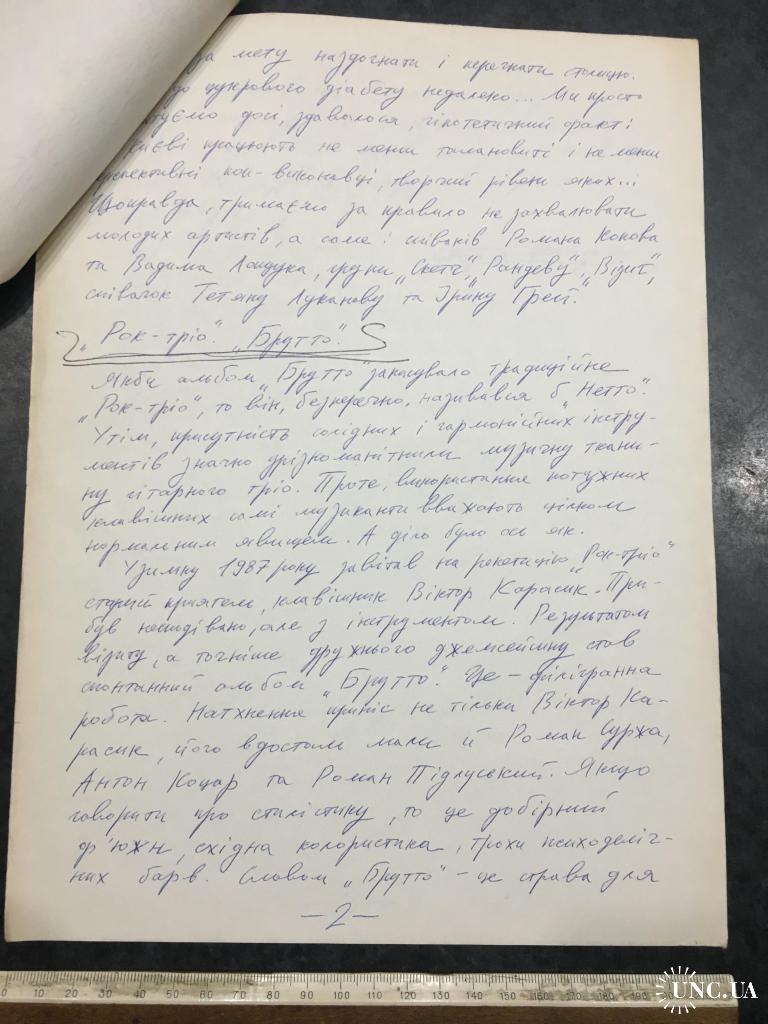 за мету наздогнати і перегнати столицю.
до цукрового діабету недалено... Ми просто
туємо досі, здавалося, гіпотетичний факт:
иєві працюють не менш талановиті і не менш
спективні поп-виконавці, творчий рівень яких...
Щоправда, тримаємо за правило не захвалювати
молодих артистів, а саме: співаків Романа Конова
та Вадима Лащука, групи „Скетч", „Рандеву", „Візит",
співачок Тетяну Луканову та Ірину Грей."
„Рок-тріо". „Брутто".
Якби альбом „Брутто" записувало традиційне
„Рок-тріо", то він, безперечно, називався б „Нетто".
Утім, присутність солідних і гармонійних інстру-
ментів значно урізноманітнили музичну ткани-
ну гітарного тріо. Проте, використання потужних
клавішних самі музиканти вважають цілком
нормальним явищем. А діло було ось як.
Узимку 1987 року завітав на репетицію „Рок-тріо"
старий приятель, клавішник Віктор Карасик. При-
був несподівано, але з інструментом. Результатом
візиту, а точніше дружнього джемсейшну став
спонтанний альбом „Брутто". Це - філігранна
робота. Натхнення приніс не тільки Віктор Ка-
расик, його вдосталь мали й Роман Суржа,
Антон Коцар та Роман Підлуський. Якщо
говорити про стилістику, то це добірний
ф'южн, східна колористика, трохи психоделіч-
них барв. Словом „Брутто" - це страва для
-2-
0 10 20 30 40 50 60 70 80 90 100 110 120 130 140 150 160 170 180 190
UNC.UA